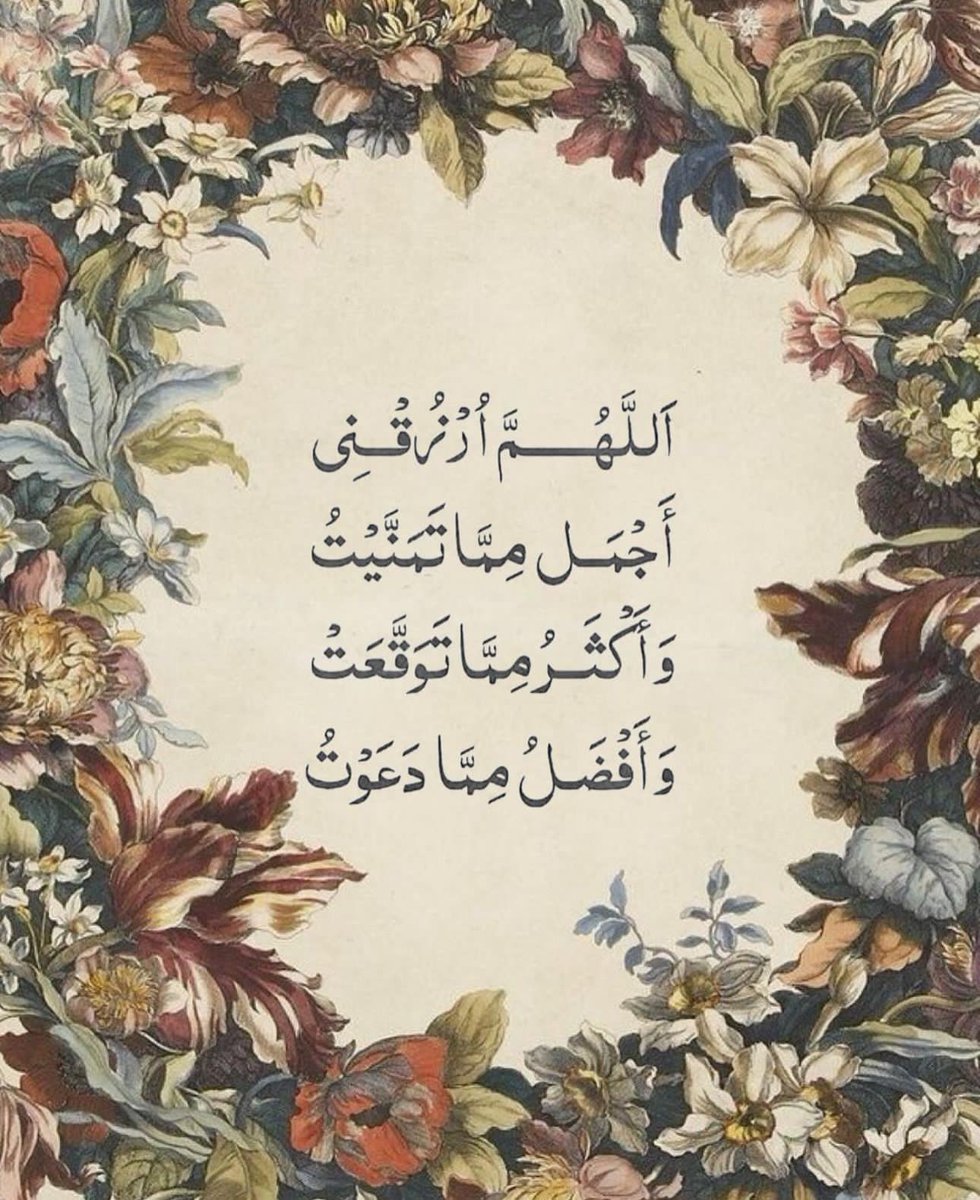 اَللَّهُـــمَّ اُرْزُقْـنِى
أَجْمَـل مِمَّا تَمَنَّيْتُ
وَأَكْثَـرُ مِمَّا تَوَقَّعَتْ
وَأَفْضَـلُ مِمَّا دَعَوْتُ